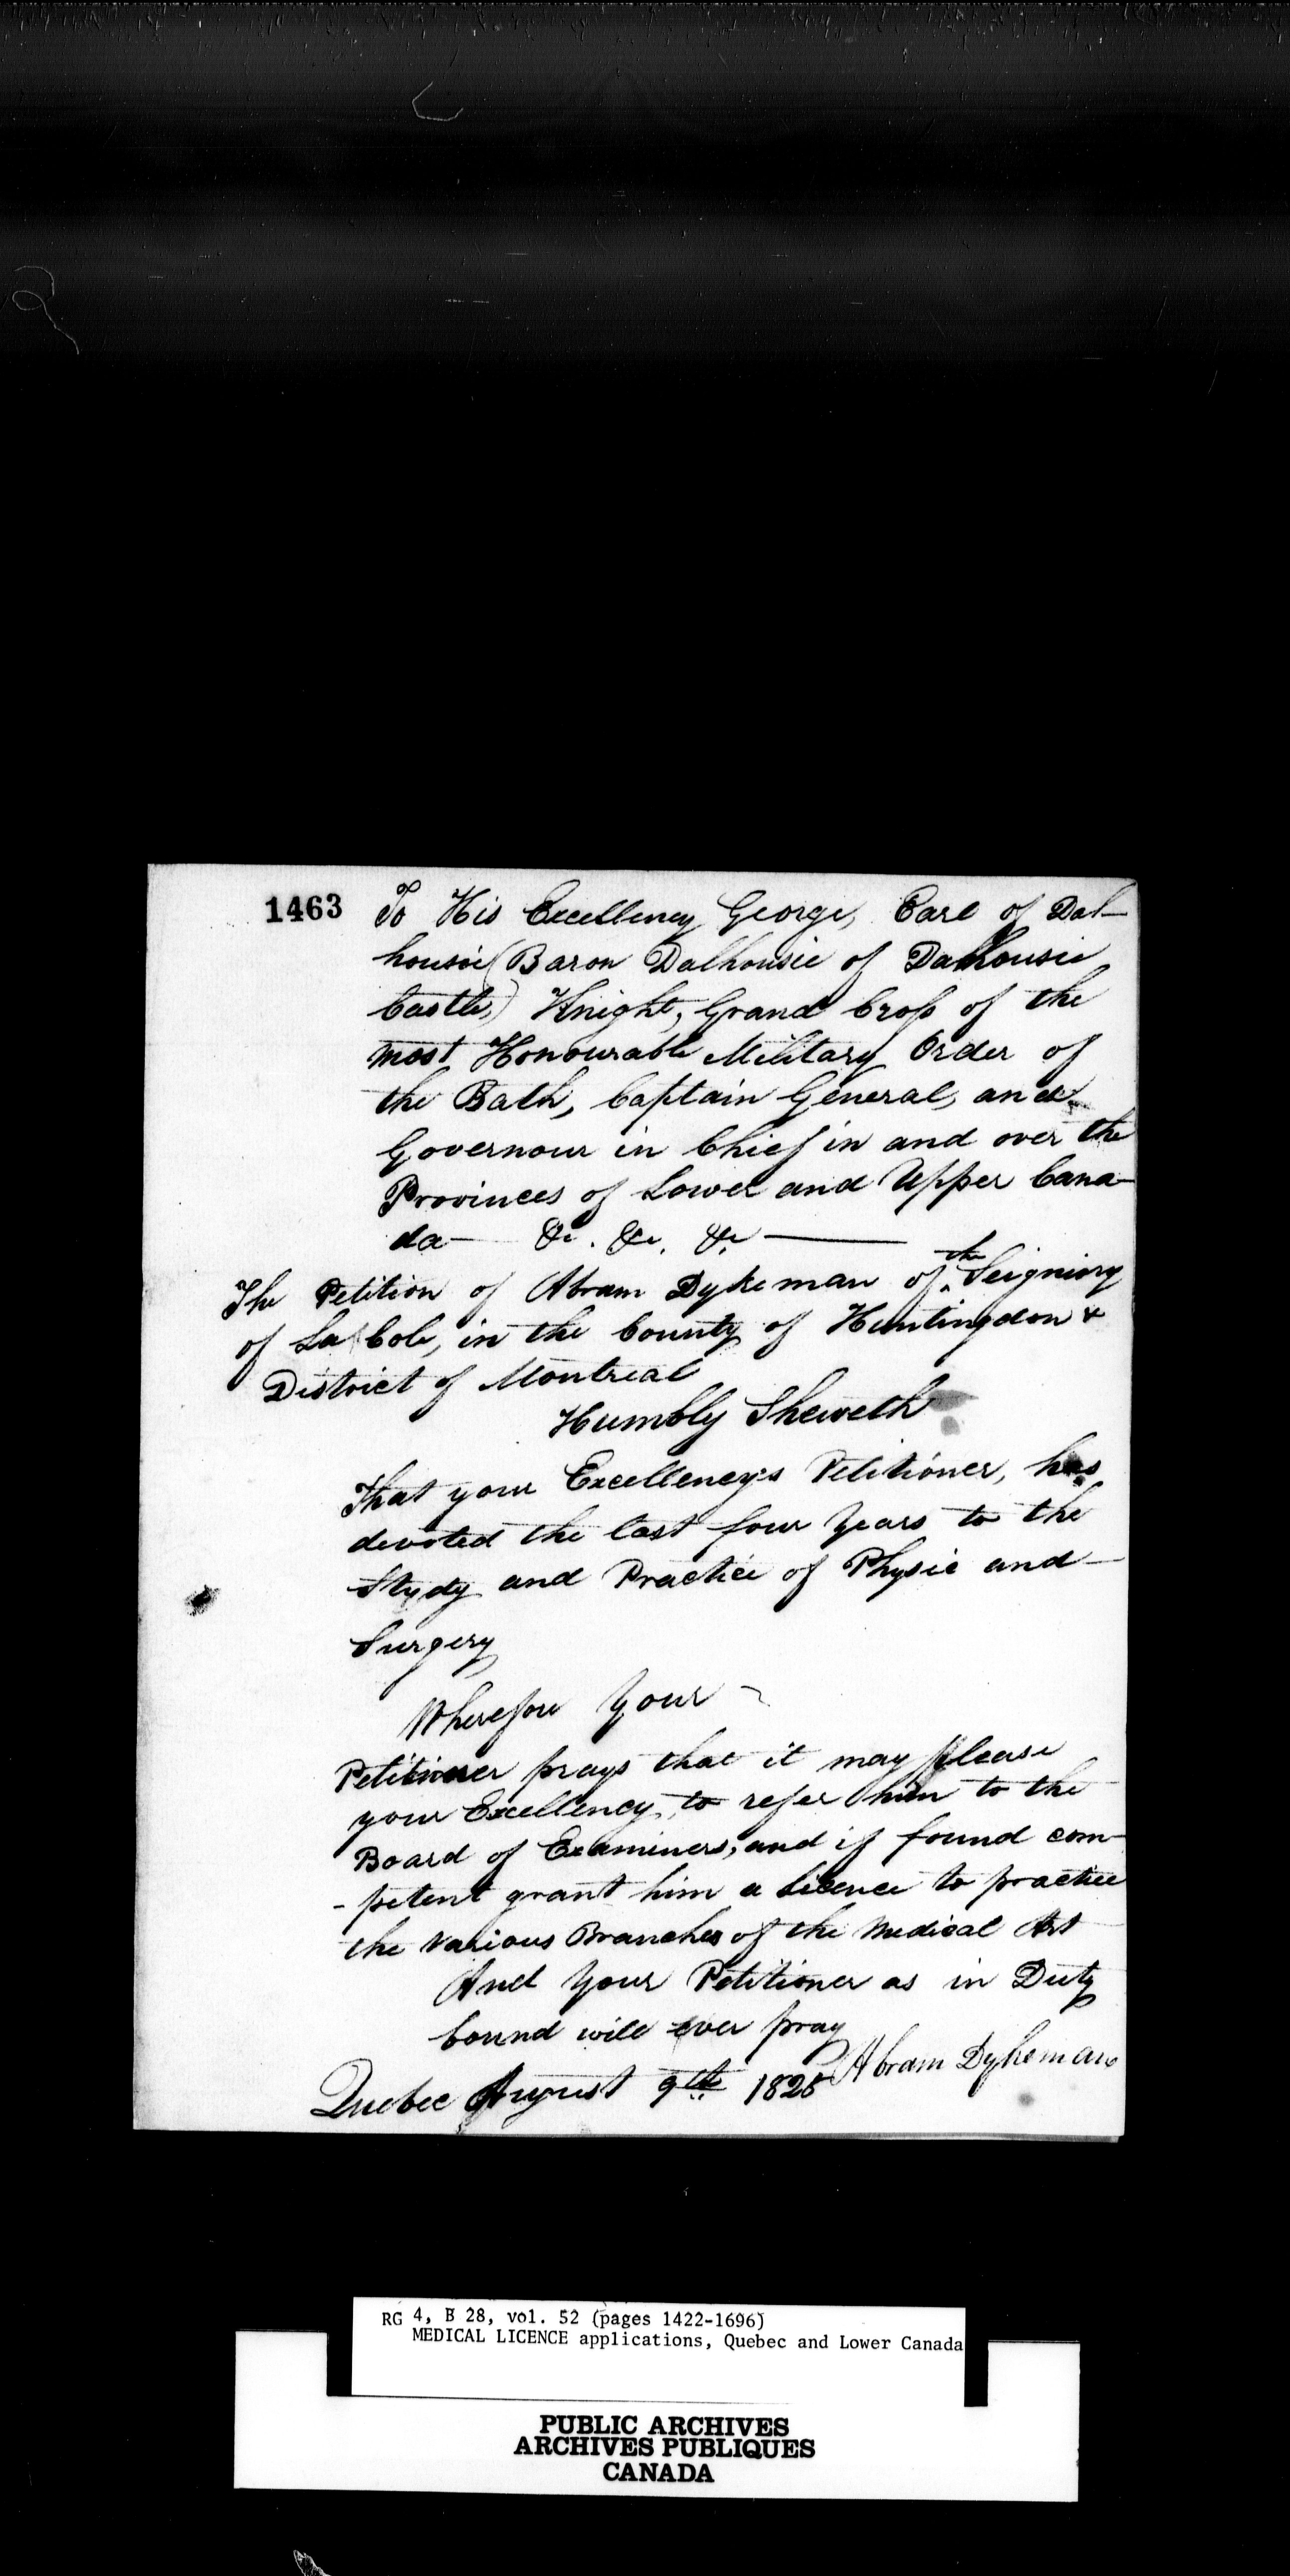 1463
To His Excellency George, Earl of Dal-
housie (Baron Dalhousie of Dalhousie
Castle,) Knight, Grand Cross of the
most Honourable Military Order of
the Bath, Captain General, and
Governour in Chief in and over the
Provinces of Lower and Upper Cana-
da — &c. &c. &c. —
The Petition of Abram Dykeman of the Seigniory
of La Cole, in the County of Huntingdon &
District of Montreal
Humbly Sheweth
That your Excellency's Petitioner, has
devoted the last four Years to the
Study and Practice of Physic and
Surgery
Wherefore Your
Petitioner prays that it may please
your Excellency, to refer him to the
Board of Examiners, and if found com-
-petent grant him a Licence to practice
the various Branches of the Medical Art
And Your Petitioner as in Duty
bound will ever pray
Abram Dykeman
Quebec August 9th 1825
RG 4, B 28, vol. 52 (pages 1422-1696)
MEDICAL LICENCE applications, Quebec and Lower Canada
PUBLIC ARCHIVES
ARCHIVES PUBLIQUES
CANADA